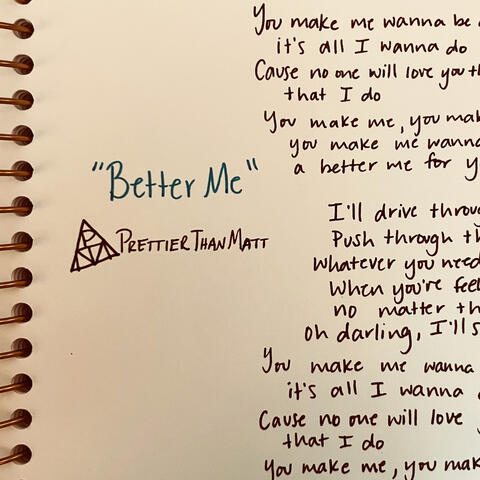 "Better Me"
PRETTIERTHANMATT
You make me wanna be
it's all I wanna do
Cause no one will love you
that I do
You make me, you
you make me wanna
a better me for
I'll drive
Push through
Whatever you need
When you're
no matter
Oh darling, I'll
You make me wanna
it's all I wanna
Cause no one will love
that I do
You make me, you